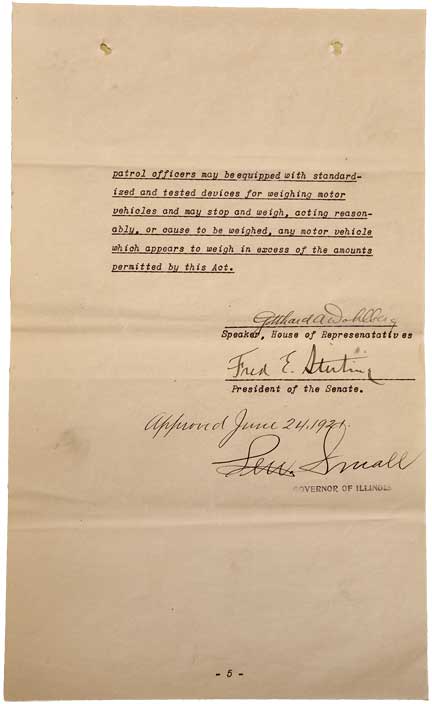 patrol officers may be equipped with standard-
ized and tested devices for weighing motor
vehicles and may stop and weigh, acting reason-
ably, or cause to be weighed, any motor vehicle
which appears to weigh in excess of the amounts
permitted by this Act.
Gotthard A. Dahlberg
Speaker, House of Represenatatives
Fred E. Sterling
President of the Senate.
Approved June 24, 1921.
Len. Small
GOVERNOR OF ILLINOIS
- 5 -